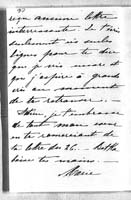 reçu aucune lettre
intéressante. Je t'écris
seulement ces seules
lignes pour te dire
que je vis encore et
que j'aspire à grands
cris au moment
de te retrouver. —
Adieu je t'embrasse
de tout mon cœur
en te remerciant de
ta lettre du 26.
baise tes mains.
Marie